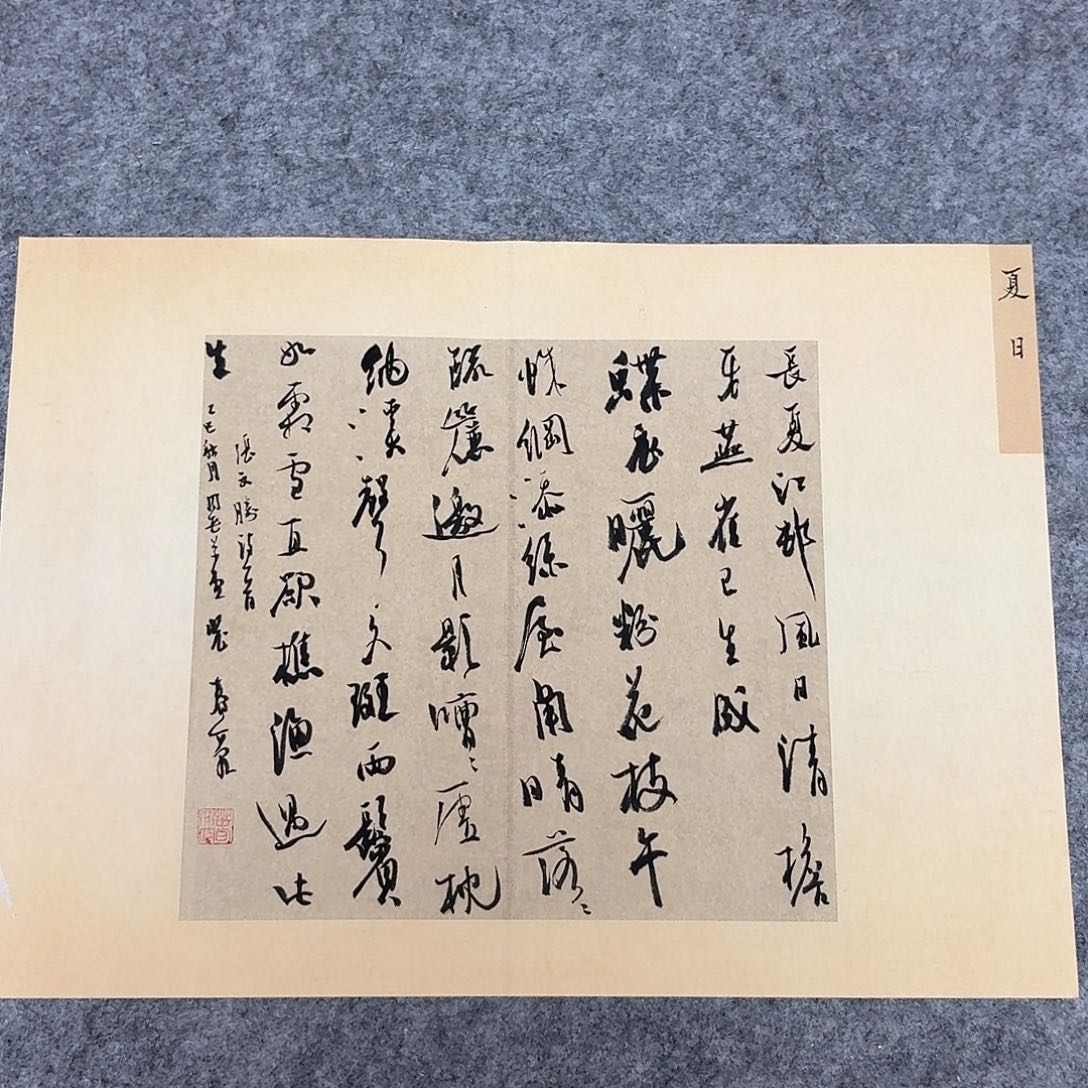 夏日
長夏江邨風日清檐
牙燕雀已生成
蝶衣曬粉花枝午
蛛網添絲屋角晴落々
疏簾邀月影嘈々虛枕
納溪聲久斑兩鬢
如霜雪直欲樵漁過此
生
張文詩一首
乙巳秋月